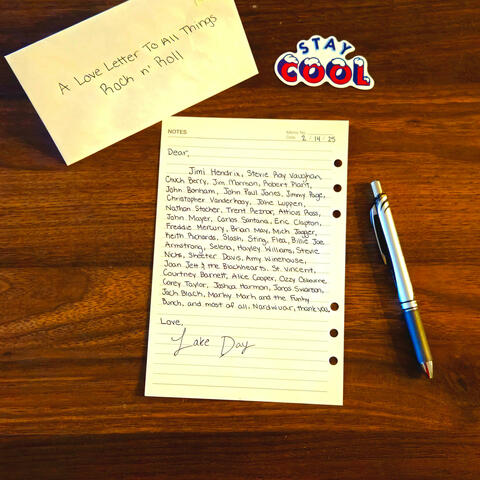 A Love Letter To All Things
Rock n' Roll
STAY
COOL
NOTES
Memo No.
Date 2 / 14 / 25
Dear,
Jimi Hendrix, Stevie Ray Vaughan,
Chuck Berry, Jim Morrison, Robert Plant,
John Bonham, John Paul Jones, Jimmy Page,
Christopher Vanderhooy, Jake Luppen,
Nathan Stocker, Trent Reznor, Atticus Ross,
John Mayer, Carlos Santana, Eric Clapton,
Freddie Mercury, Brian May, Mick Jagger,
Keith Richards, Slash, Sting, Flea, Billie Joe
Armstrong, Selena, Hayley Williams, Stevie
Nicks, Skeeter Davis, Amy Winehouse,
Joan Jett & the Blackhearts, St. Vincent,
Courtney Barnett, Alice Cooper, Ozzy Osbourne,
Corey Taylor, Joshua Harmon, Jonas Swanson,
Jack Black, Marky Mark and the Funky
Bunch, and most of all, Nardwuar, thank you.
Love,
Lake Day